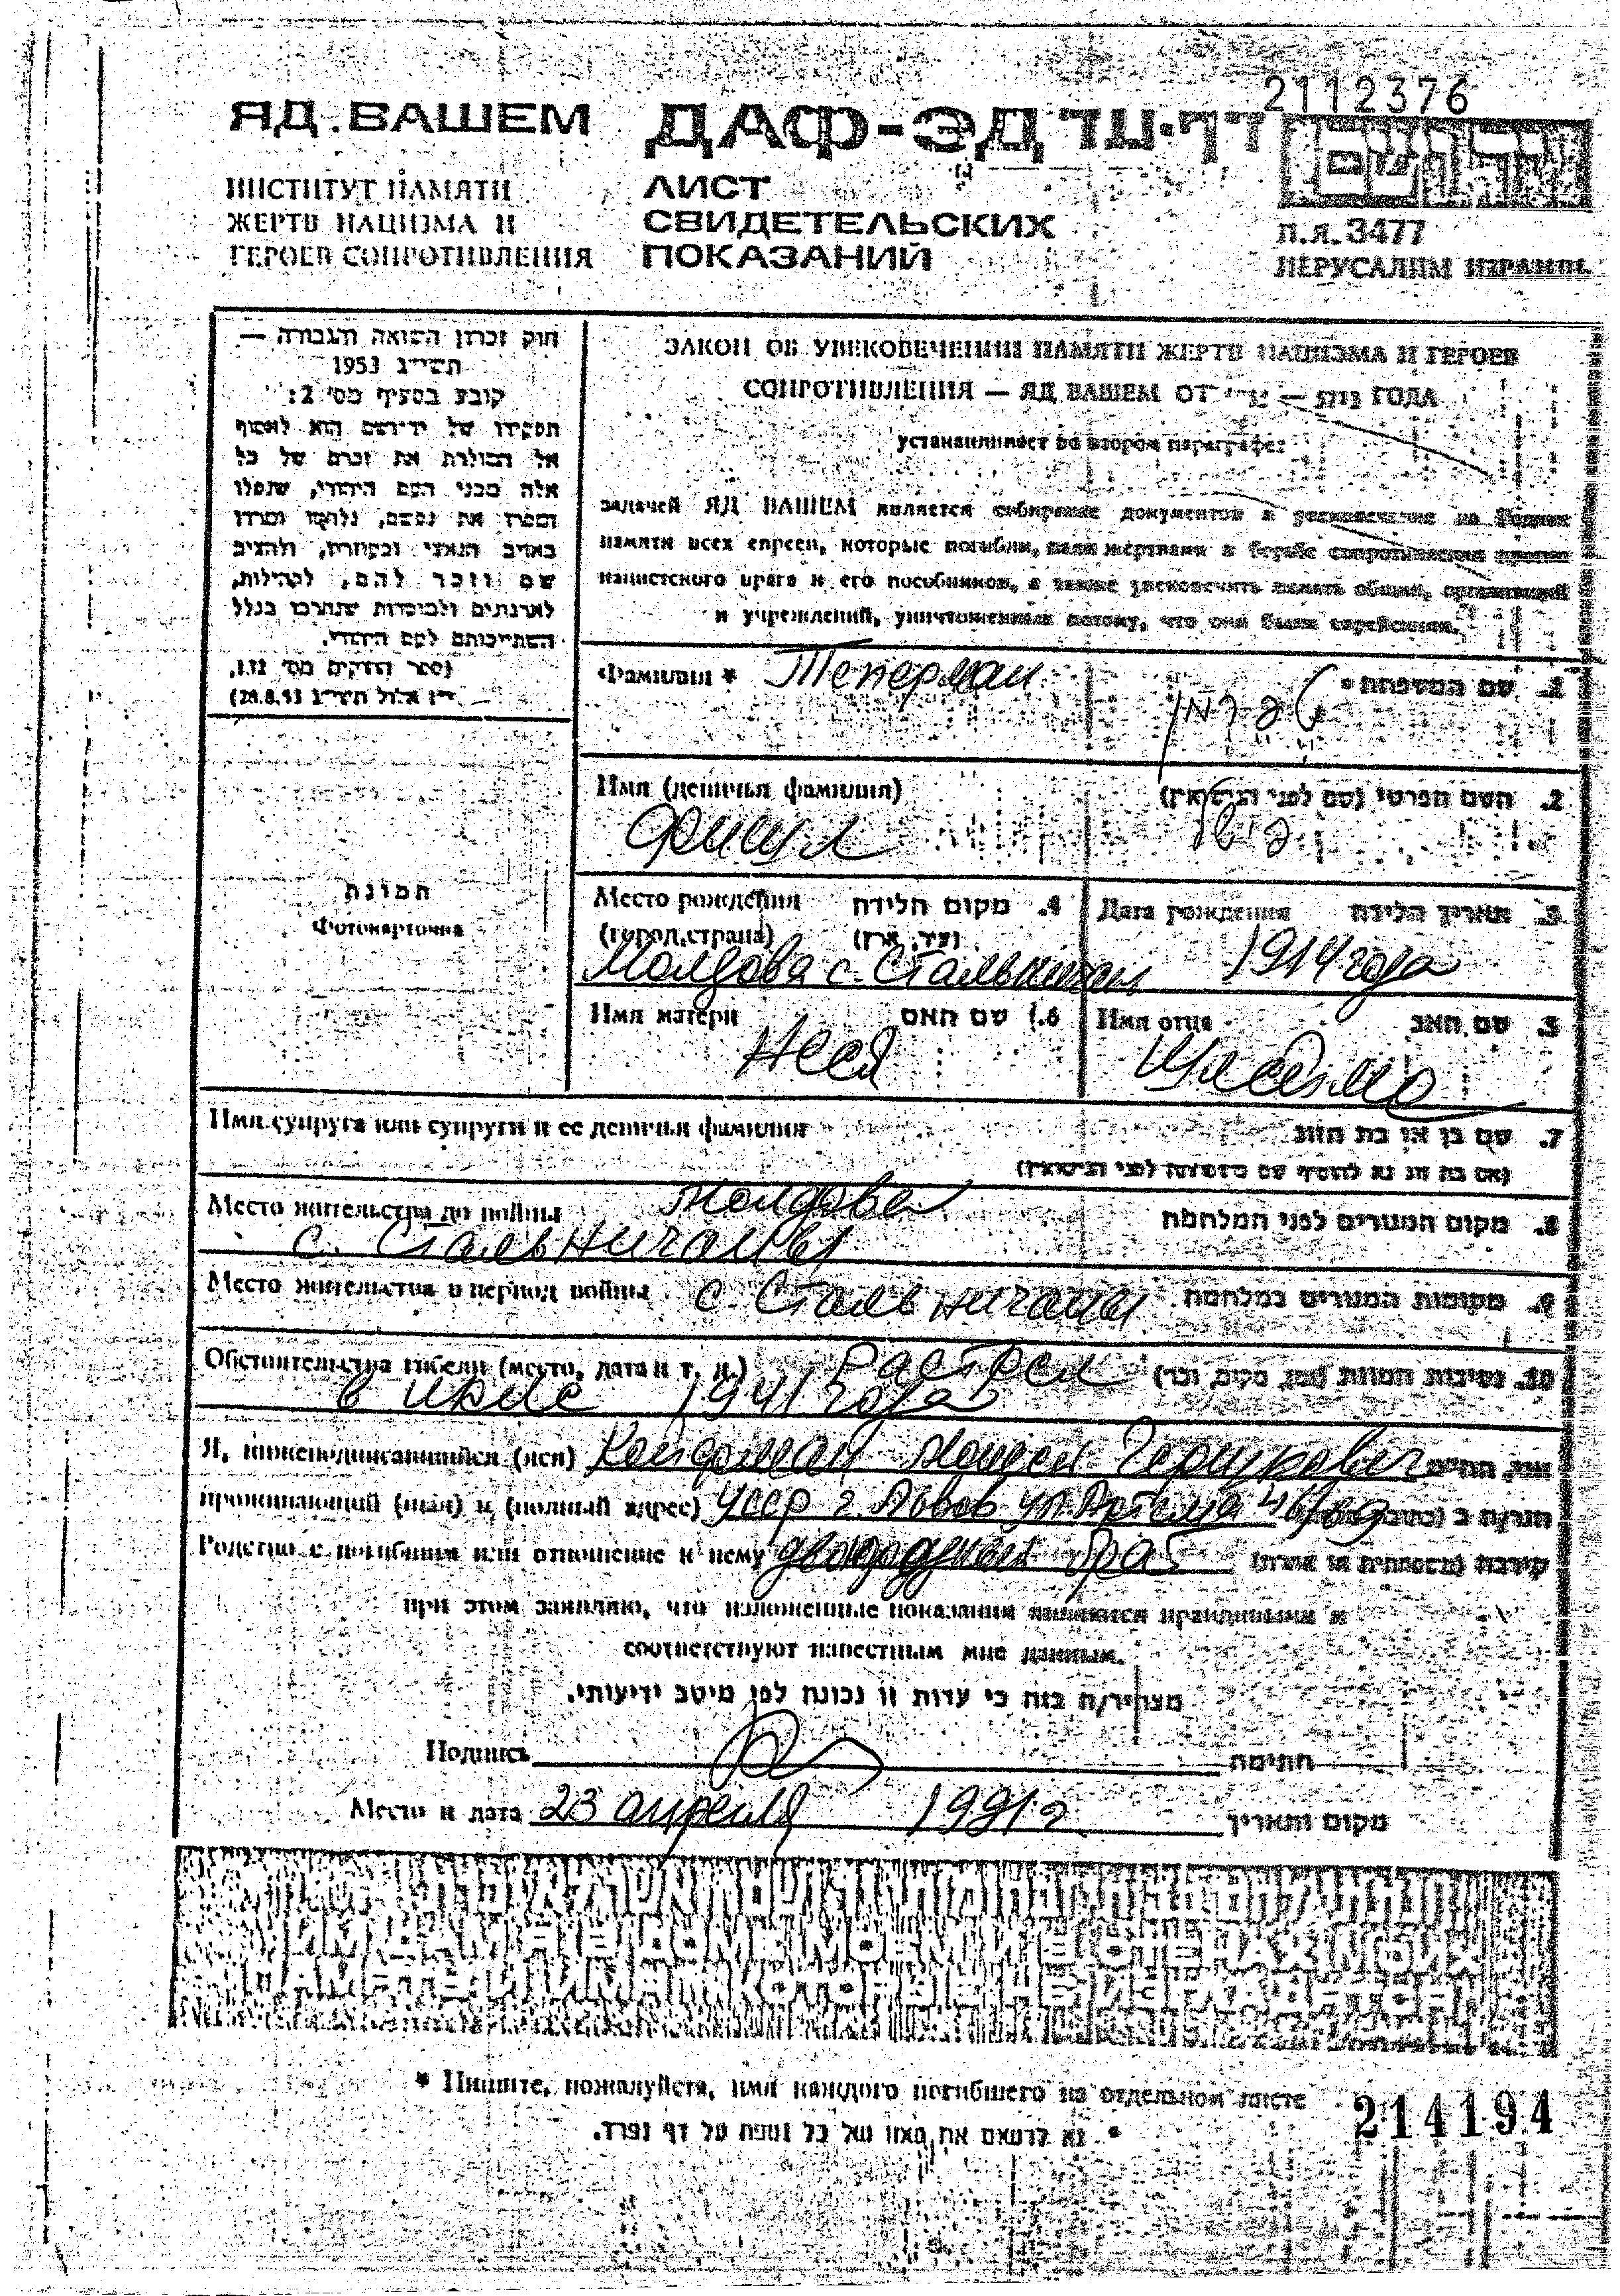 2112376
ЯД ВАШЕМ
ДАФ-ЭД דף-עד
ИНСТИТУТ ПАМЯТИ
ЖЕРТВ НАЦИЗМА И
ГЕРОЕВ СОПРОТИВЛЕНИЯ
ЛИСТ
СВИДЕТЕЛЬСКИХ
ПОКАЗАНИЙ
п.я. 3477
ИЕРУСАЛИМ ИЗРАИЛЬ
חוק זכרון השואה והגבורה —
תשי״ג 1953
קובע בסעיף מס׳ 2:
תפקידו של יד-ושם הוא לאסוף
אל המולדת את זכרם של כל
אלה מבני העם היהודי, שנפלו
ומסרו את נפשם, נלחמו ומרדו
באויב הנאצי ובעוזריו, ולהציב
שם וזכר להם, לקהילות,
לארגונים ולמוסדות שנחרבו בגלל
השתייכותם לעם היהודי.
(ספר החוקים מס׳ 132,
י״ז אלול תשי״ג 28.8.53)
ЗАКОН ОБ УВЕКОВЕЧЕНИИ ПАМЯТИ ЖЕРТВ НАЦИЗМА И ГЕРОЕВ
СОПРОТИВЛЕНИЯ — ЯД ВАШЕМ ОТ — 5713 ГОДА
устанавливает во втором параграфе:
задачей ЯД ВАШЕМ является собирание документов и увековечение на Родине
памяти всех евреев, которые погибли, пали жертвами в борьбе сопротивления против
нацистского врага и его пособников, а также увековечить память общин, организаций
и учреждений, уничтоженных потому, что они были еврейскими.
Фамилия * Теперман 1. שם המשפחה *
טפרמן
Имя (девичья фамилия) 2. השם הפרטי (שם לפני הנישואין)
Фишул פישל
Место рождения 4. מקום הלידה Дата рождения 3. תאריך הלידה
(город, страна) (עיר, ארץ)
Молдова с. 1914 года
Имя матери 6. שם האם Имя отца 5. שם האב
Неся
Имя супруга или супруги и ее девичья фамилия 7. שם בן או בת הזוג
(אם בת זוג נא להוסיף שם משפחה לפני הנישואין)
Место жительства до войны Молдова 8. מקום המגורים לפני המלחמה
с. Стальничаны
Место жительства в период войны с. Стальничаны 9. מקומות המגורים במלחמה
Обстоятельства гибели (место, дата и т. д.) Растрел 10. נסיבות המוות (זמן, מקום, וכו׳)
в июле 1941 года
Я, нижеподписавшийся (аяся) Койфман Мошел Гершкович אני, הח״מ
проживающий (щая) в (полный адрес) УССР г. Львов ул. Артема
Родство с погибшим или отношение к нему двоюродный брат קירבה (משפחתית או אחרת)
при этом заявляю, что изложенные показания являются правдивыми и
соответствуют известным мне данным.
מצהיר/ה בזה כי עדות זו נכונה לפי מיטב ידיעותי.
Подпись חתימה
Место и дата 23 апреля 1991 г מקום ותאריך
И ИМ ДАМ Я В ДОМЕ МОЕМ И В СТЕНАХ МОИХ
* Пишите, пожалуйста, имя каждого погибшего на отдельном листе
* נא לרשום את שמו של כל נספה על דף נפרד.
214194